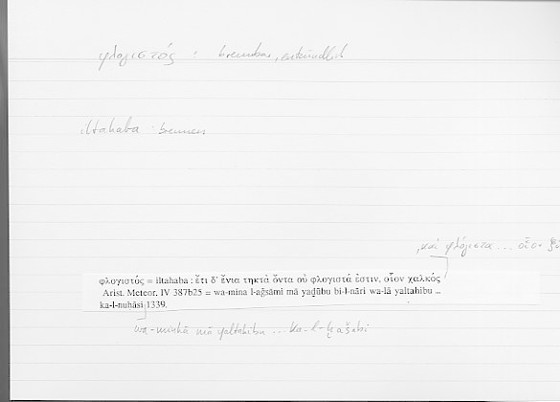 φλογιστός : brennbar, entzündlich
iltahaba : brennen
καὶ φλόγιστα ... οἷον
φλογιστός = iltahaba : ἔτι δ᾽ ἔνια τηκτὰ ὄντα οὐ φλογιστά ἐστιν, οἷον χαλκός
Arist. Meteor. IV 387b25 = wa-mina l-aǧsāmi mā yaḏūbu bi-l-nāri wa-lā yaltahibu ...
ka-l-nuḥāsi 1339.
wa-minhā mā yaltahibu ... ka-l-ḫašabi